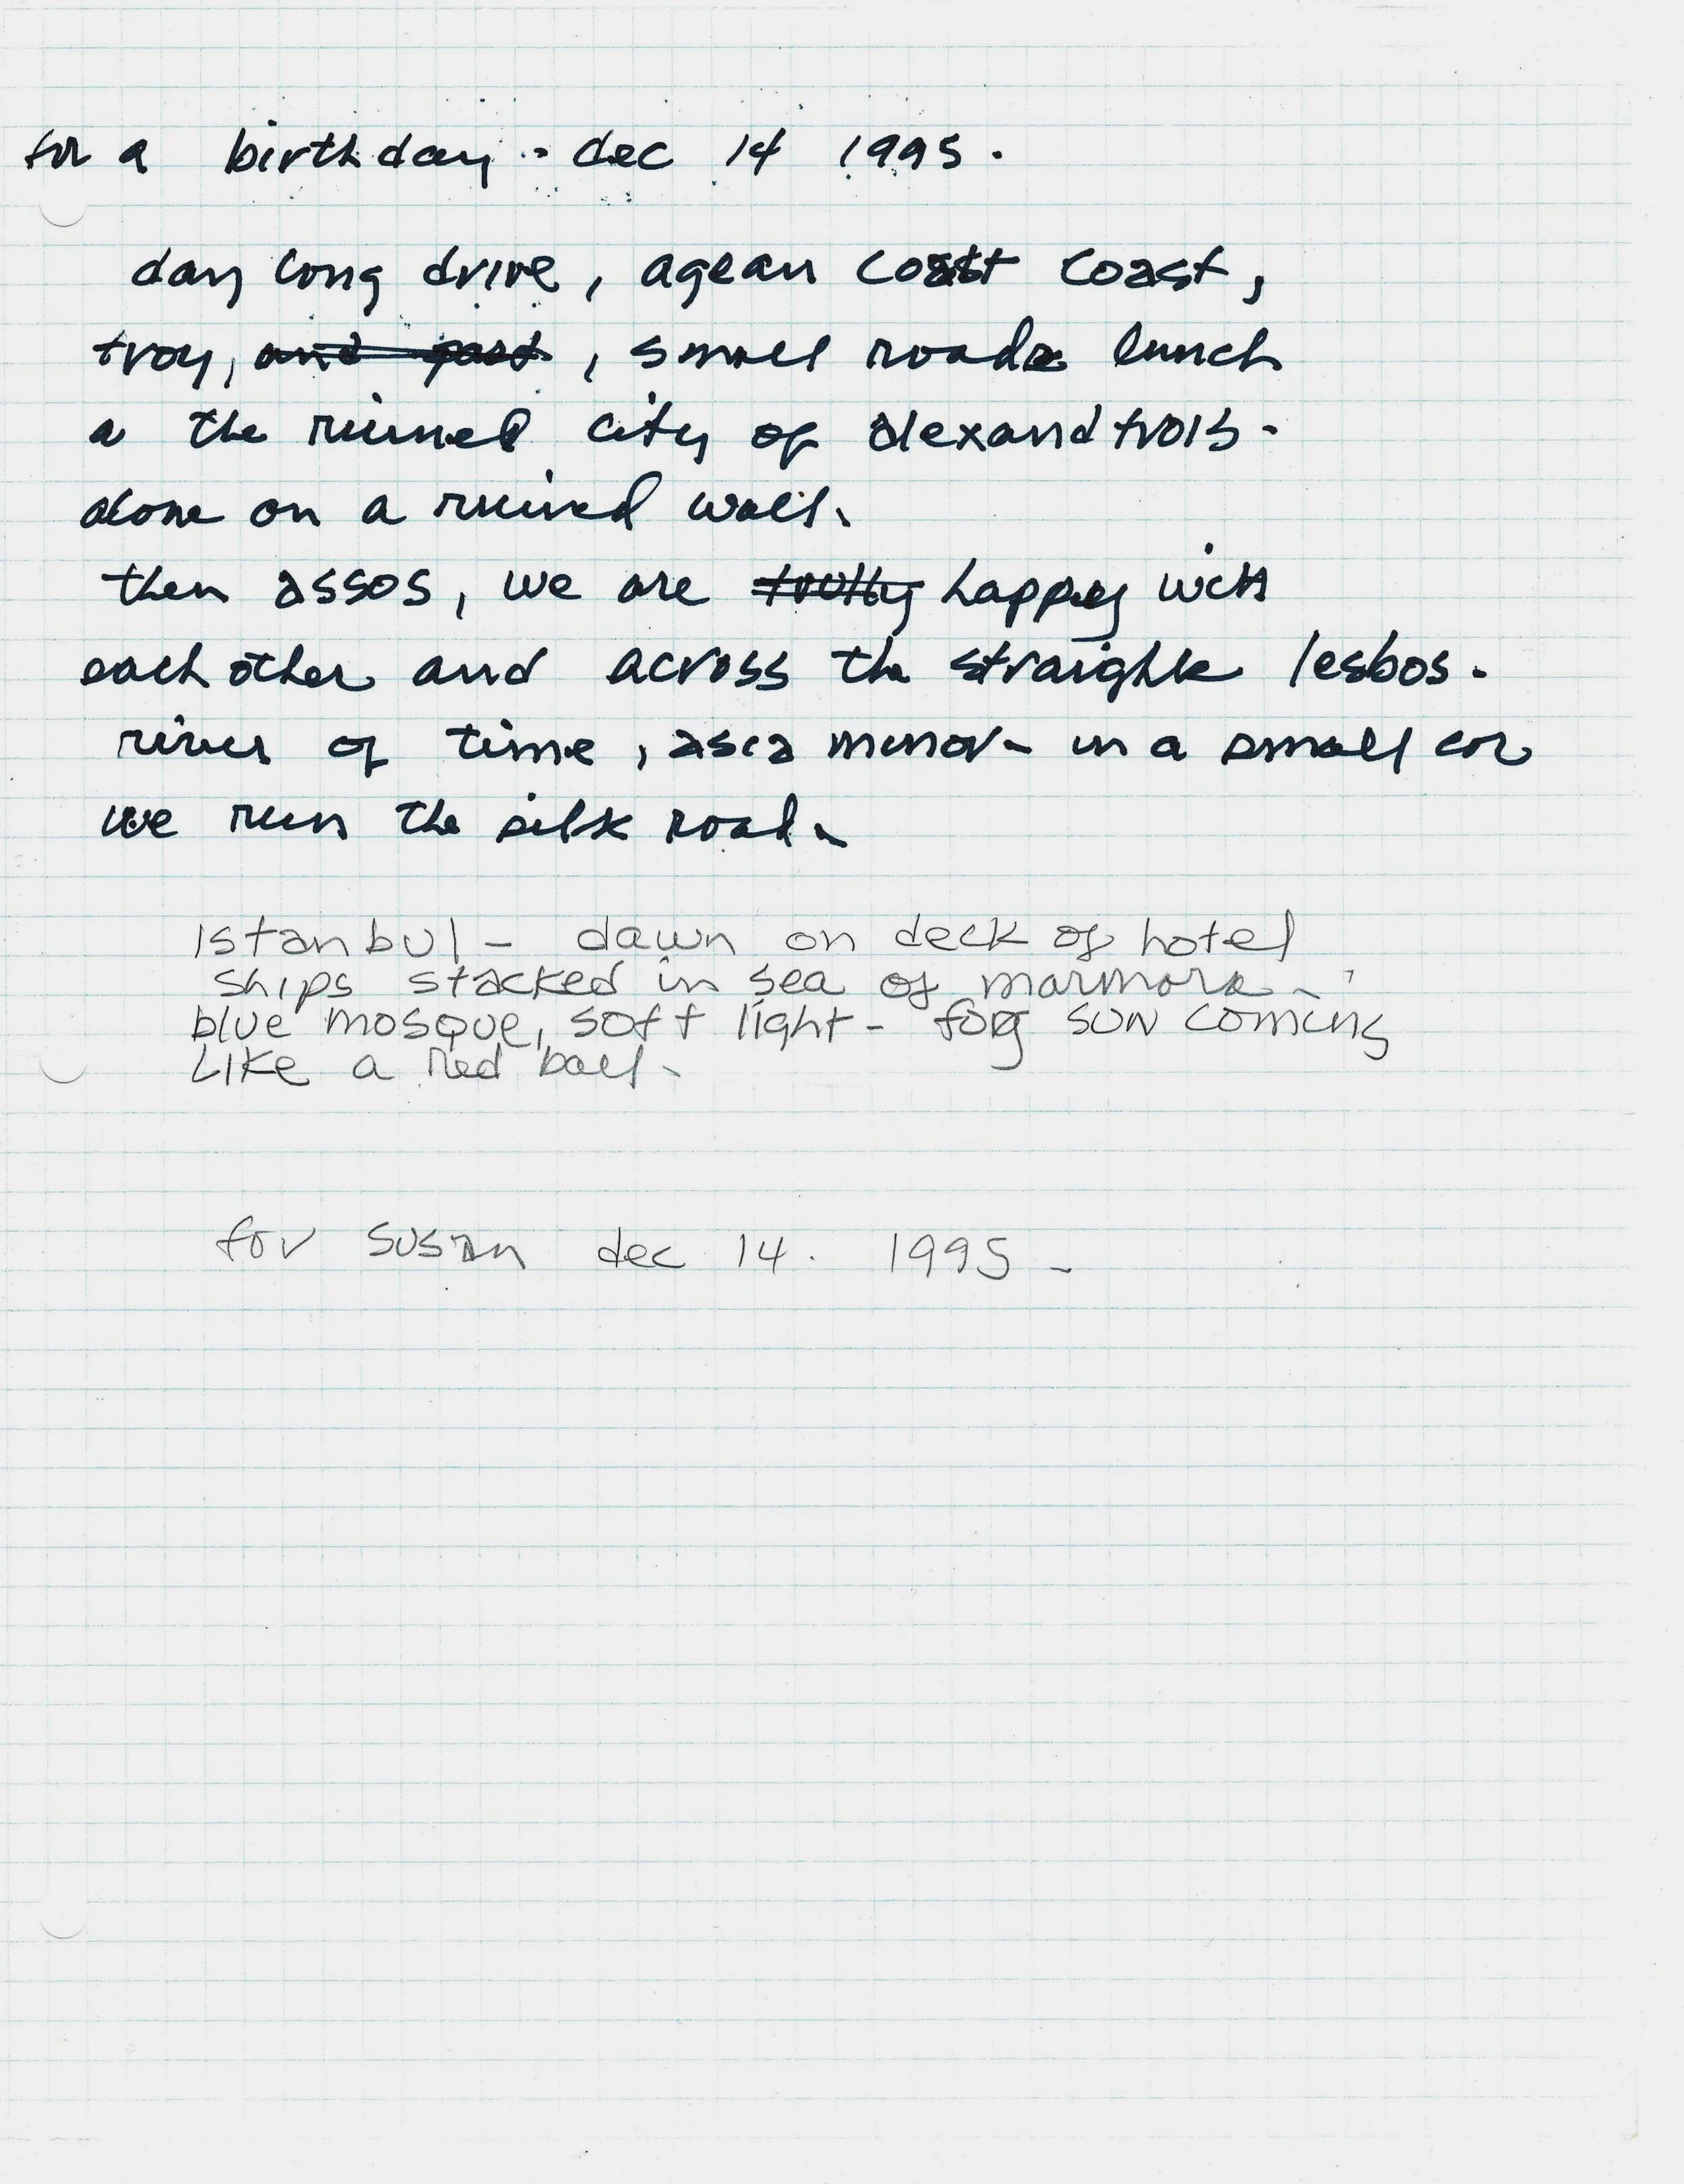 for a birthday - dec 14 1995.
day long drive, agean coast coast,
troy, and past, small roads lunch
a the ruined city of alexandtrois-
alone on a ruined wall.
then assos, we are happy with
each other and across the straights lesbos.
river of time, asia minor - in a small car
we run the silk road.
istanbul - dawn on deck of hotel
ships stacked in sea of marmora -
blue mosque, soft light - fog sun coming
like a red ball.
for susan dec 14. 1995 -